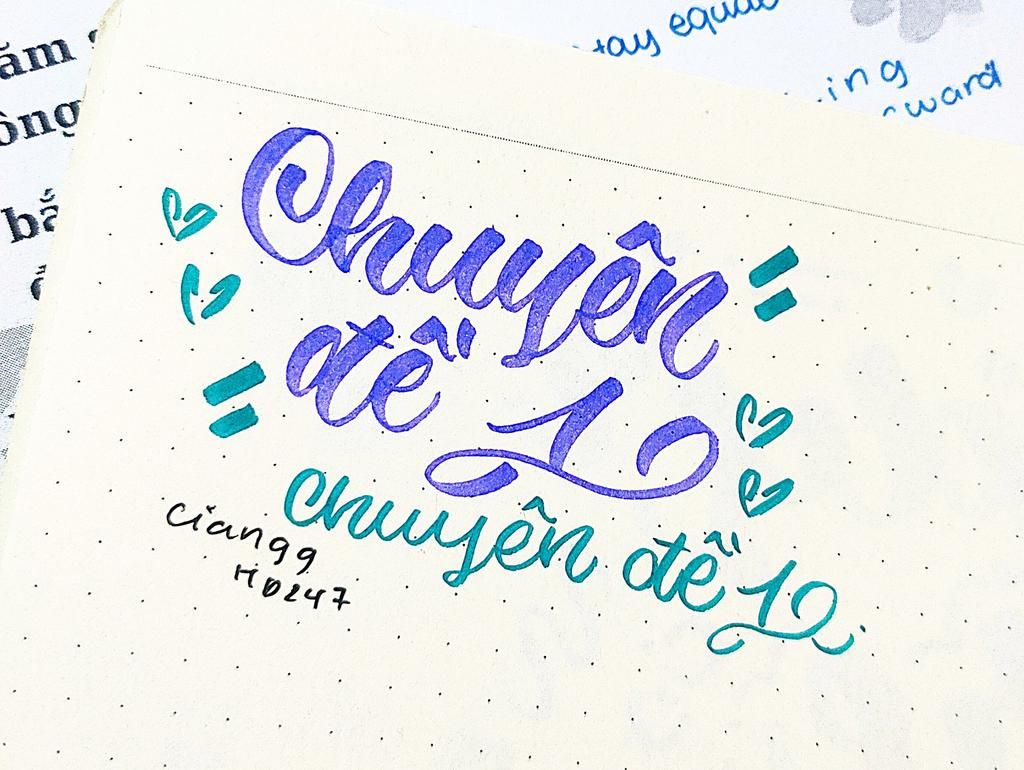 ăm
ông
bắ
tay equal
ing
ward
Chuyên
đề 10
chuyên đề 10
ciangg
HD247